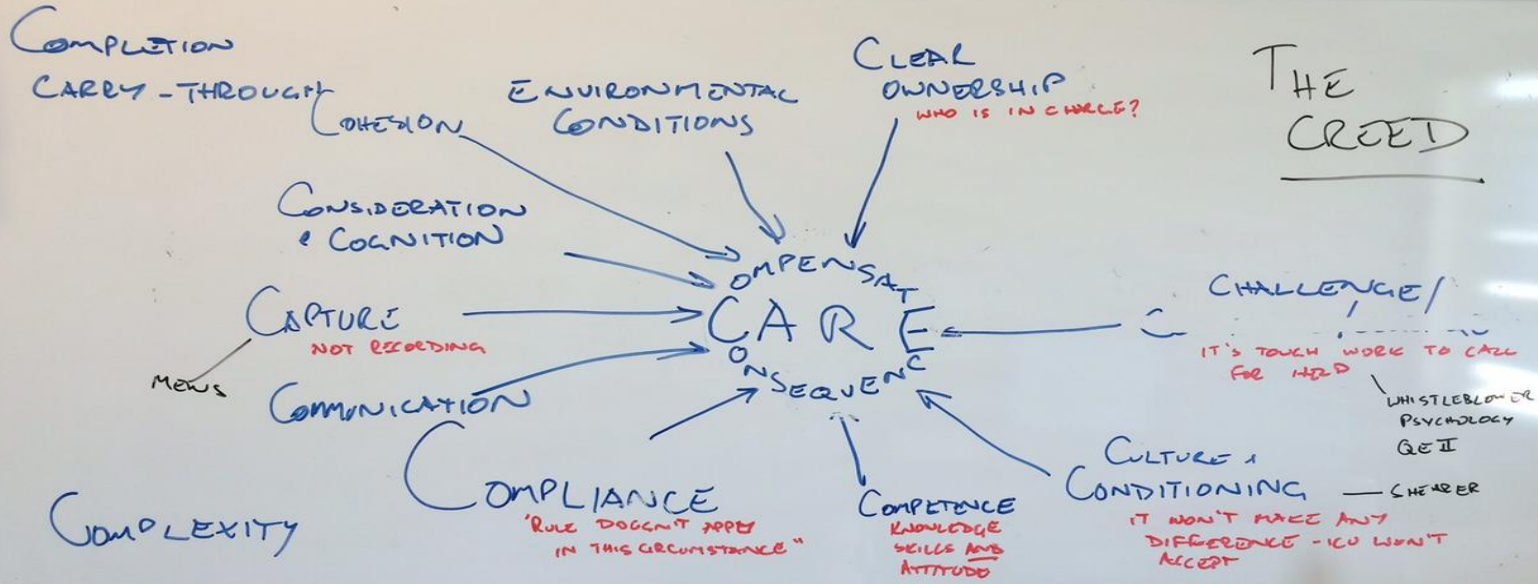 COMPLETION
CARRY-THROUGH
COHESION
ENVIRONMENTAL
CONDITIONS
CLEAR
OWNERSHIP
WHO IS IN CHARGE?
THE
CREED
CONSIDERATION
& COGNITION
CAPTURE
NOT RECORDING
MEWS
COMMUNICATION
OMPENSAT
CARE
ONSEQUENC
CHALLENGE/
C
IT'S TOUGH WORK TO CALL
FOR HELP
WHISTLEBLOWER
PSYCHOLOGY
QE II
COMPLIANCE
"RULE DOESN'T APPLY
IN THIS CIRCUMSTANCE"
COMPLEXITY
COMPETENCE
KNOWLEDGE
SKILLS AND
ATTITUDE
CULTURE &
CONDITIONING
SHEARER
IT WON'T MAKE ANY
DIFFERENCE - ICU WON'T
ACCEPT